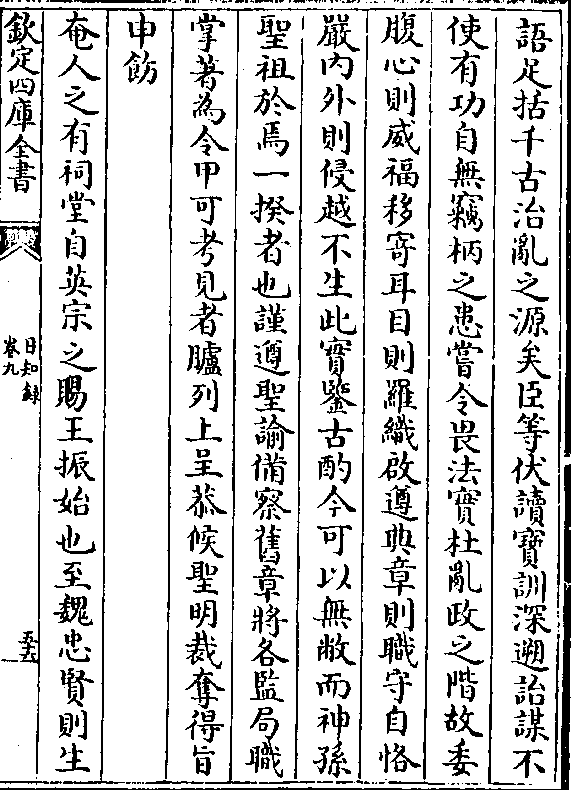 語足括千古治亂之源矣臣等伏讀寶訓深遡詒謀不
使有功自無竊柄之患嘗令畏法實杜亂政之階故委
腹心則威福移寄耳目則羅織啟遵典章則職守自恪
嚴内外則侵越不生此實鑒古酌今可以無敝而神孫
聖祖於焉一揆者也謹遵聖諭備察舊章將各監局職
掌著為令甲可考見者臚列上呈恭候聖明裁奪得旨
申飭
奄人之有祠堂自英宗之賜王振始也至魏忠賢則生
欽定四庫全書
日知録
卷九
五五